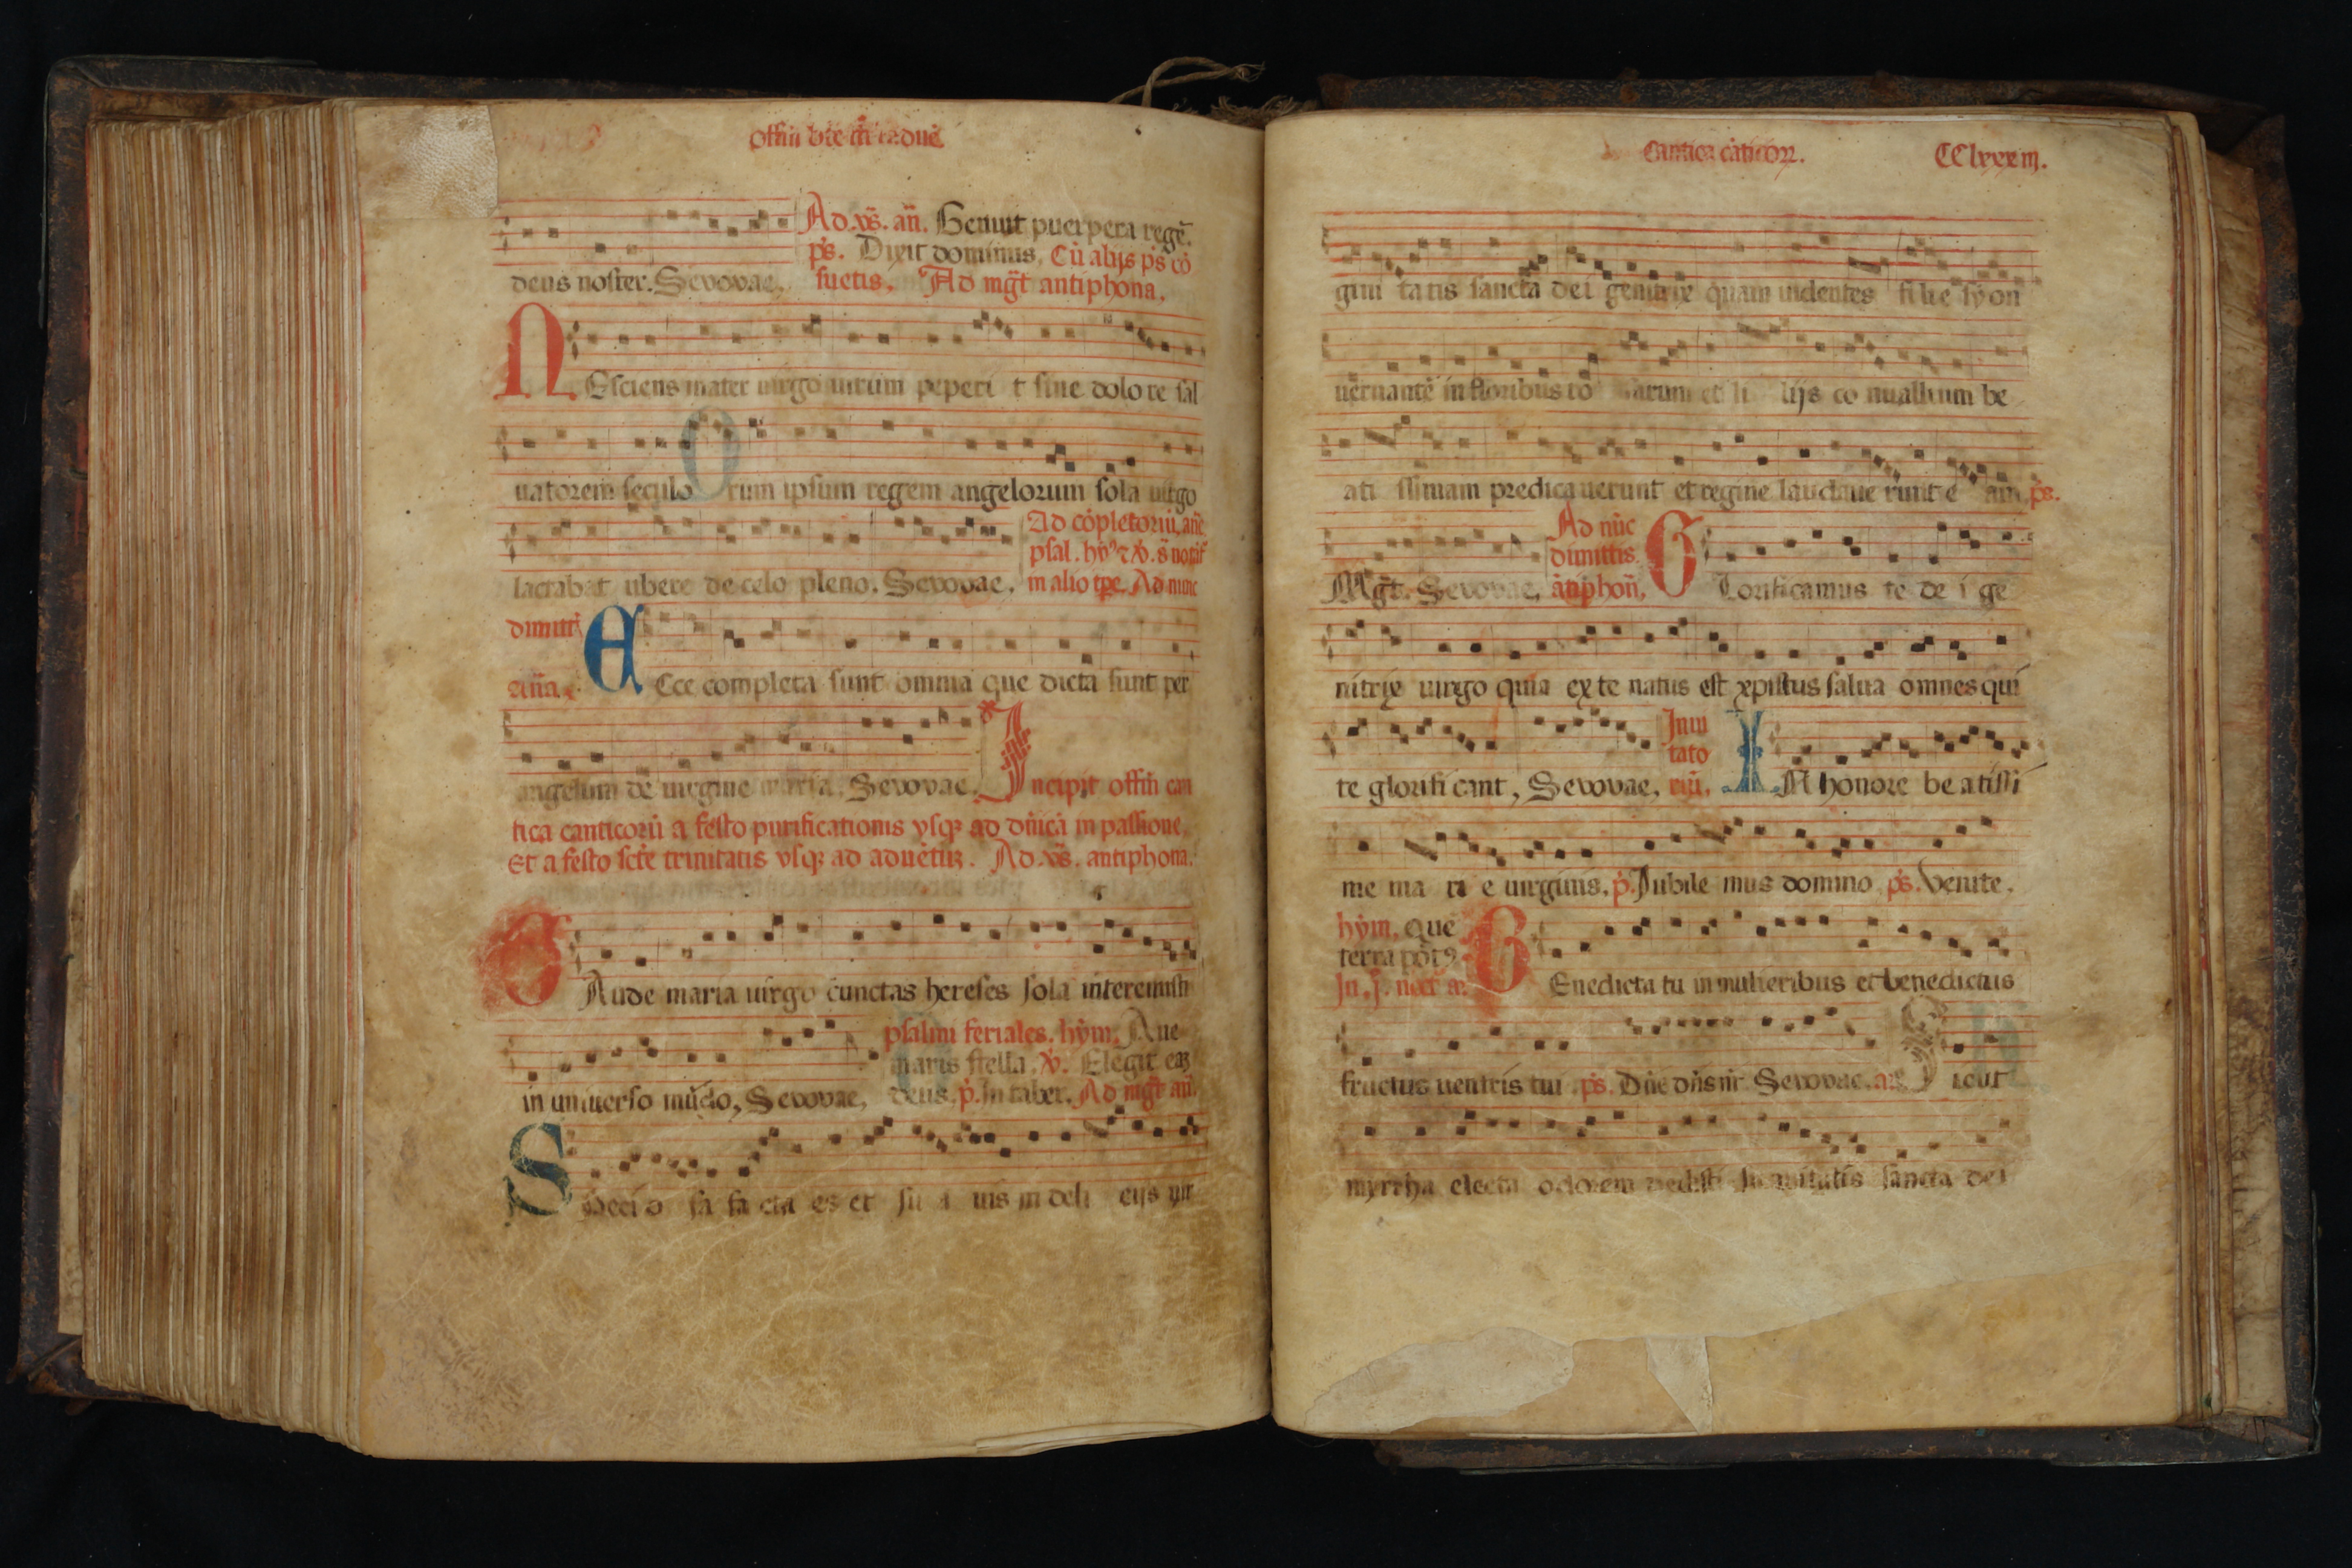 offm bte
Ad. vs. an. Genuit puerpera rege.
ps. Dixit dominus. Cu alijs ps co
deus noster. Sevovae. suetis. Ad mgt antiphona.
NEsciens mater uirgo uirum peperi t sine dolo re sal
uatorem seculo rum ipsum regem angelorum sola uirgo
Ad copletoriu. ane
psal. hy
lactabat ubere de celo pleno. Sevovae. in alio tpe. Ad nunc
dimitt
ana. ECce completa sunt omnia que dicta sunt per
angelum de uirgine maria. Sevovae. Incipit offm can
tica canticoru a festo purificationis vsq; ad dnica in passione.
Et a festo scte trinitatis vsq; ad aduetu. Ad. vs. antiphona.
GAude maria uirgo cunctas hereses sola interemisti
psalmi feriales. hym. Aue
maris stella. v. Elegit ea
in uniuerso mudo, Sevovae, deus. p. In taber. Ad mgt an.
Speci o sa fa cta es et su a uis in deli cijs uir
Cantica caticor.
CClxxxiii.
gini tatis sancta dei genitrix quam uidentes filie syon
uernante in floribus ro sarum et li lijs co nuallium be
ati ssimam predica uerunt et regine laudaue runt e am ps.
Ad nuc
dimittis.
Mgt. Sevovae, atiphon, Glorificamus te de i ge
nitrix uirgo quia ex te natus est xpistus salua omnes qui
Inui
tato
te glorifi cant, Sevovae, riu. IN honore be atissi
me ma ri e uirginis. p. Jubile mus domino ps. Venite.
hym. Que
terra pot9
BEnedicta tu in mulieribus et benedictus
fructus uentris tui ps. Dne dns nr Sevovae. an Sicut
myrrha electa odorem dedisti suauitatis sancta dei